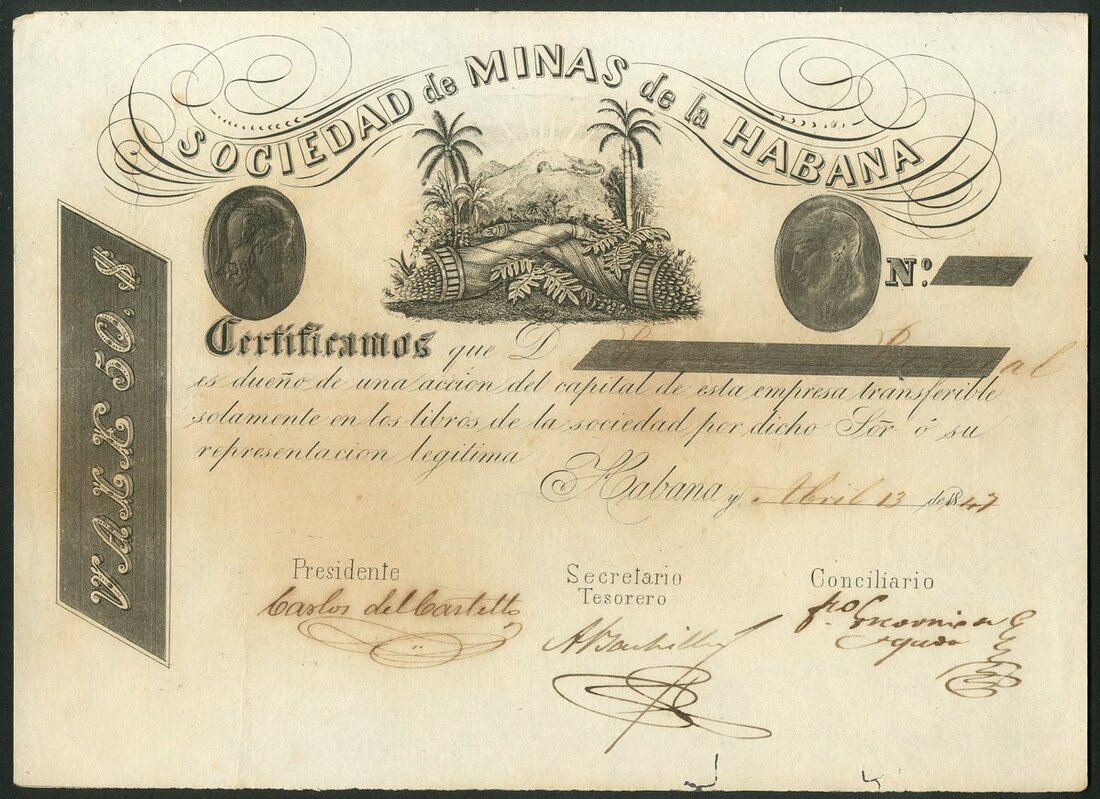 SOCIEDAD de MINAS de la HABANA
Nº.
VALE 50. $
Certificamos que D
es dueño de una accion del capital de esta empresa transferible
solamente en los libros de la sociedad por dicho Sõr ó su
representacion legitima
Habana y Abril 13 de 1847
Presidente
Carlos del Castillo
Secretario
Tesorero
Conciliario